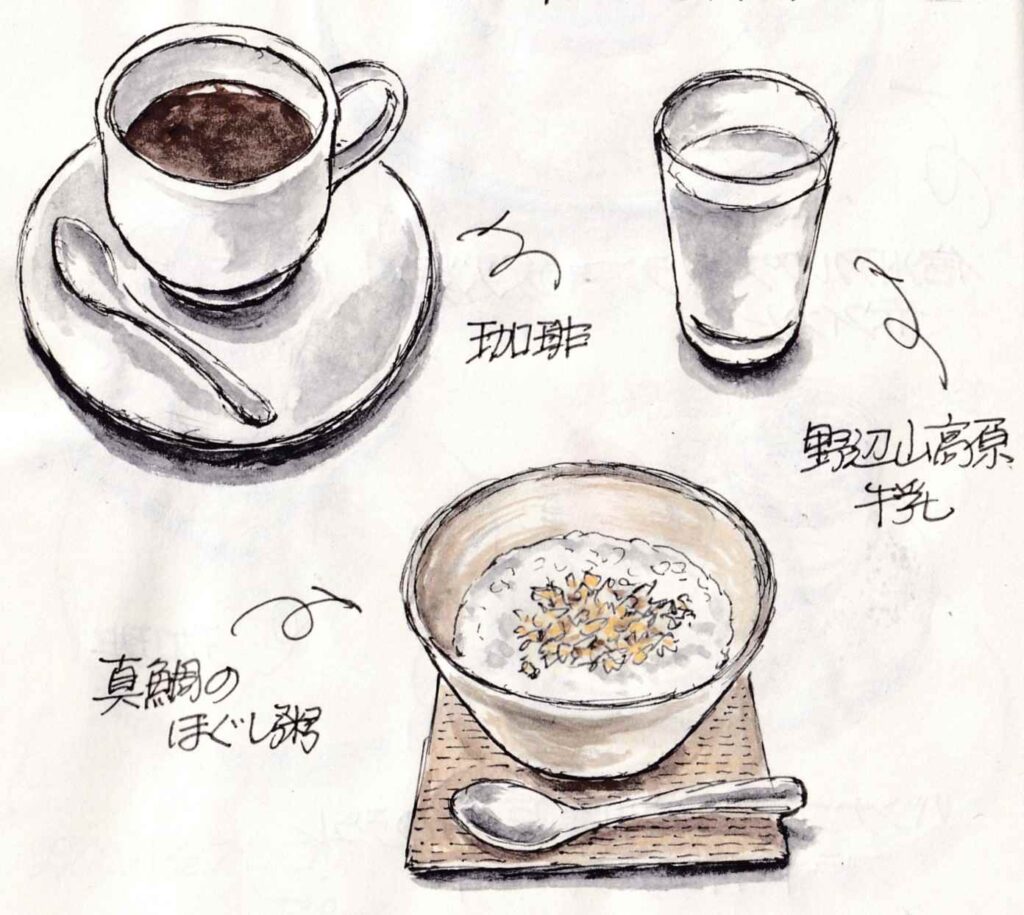 珈琲
野辺山高原
牛乳
真鯛の
ほぐし粥